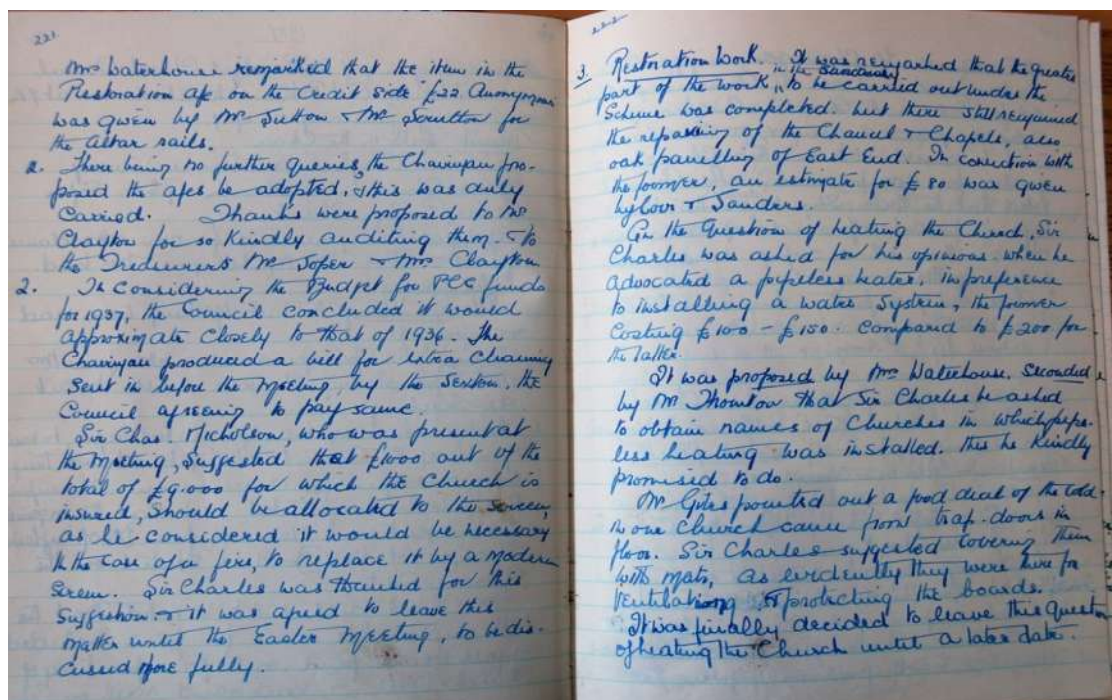 221.
Mrs Waterhouse remarked that the item in the
Restoration a/c on the Credit side £22 Anonymous
was given by Mr Sutton & Mr Scrutton for
the altar rails.
2. There being no further queries, the Chairman pro-
posed the a/cs be adopted, & this was duly
carried. Thanks were proposed to Mr
Clayton for so kindly auditing them. & to
the Treasurers Mr Soper & Mrs Clayton
2. In considering the Budget for PCC funds
for 1937, the Council concluded it would
approximate closely to that of 1936. The
Chairman produced a bill for extra cleaning
sent in before the meeting, by the Sexton, the
Council agreeing to pay same.
Sir Chas. Nicholson, who was present at
the meeting, suggested that £1000 out of the
total of £9.000 for which the Church is
insured, should be allocated to the screen,
as he considered it would be necessary
in the case of a fire, to replace it by a modern
screen. Sir Charles was thanked for this
suggestion & it was agreed to leave this
matter until the Easter meeting, to be dis-
cussed more fully.
222
3. Restoration Work. It was remarked that the greater
part of the work in the Sanctuary to be carried out under the
Scheme was completed. but there still remained
the repairing of the Chancel & Chapels, also
oak panelling of East End. In conection with
the former, an estimate for £80 was given
by & Sanders.
On the Question of heating the Church, Sir
Charles was asked for his opinions. when he
advocated a pipeless heater, in preference
to installing a water System, the former
costing £100 - £150. compared to £200 for
the latter.
It was proposed by Mrs Waterhouse, seconded
by Mr Thornton that Sir Charles be asked
to obtain names of Churches in which pipe-
less heating was installed. this he kindly
promised to do.
Mr Giles pointed out a good deal of the cold
in our Church came from trap-doors in
floor. Sir Charles suggested covering them
with mats, as evidently they were there for
ventilating & protecting the boards.
It was finally decided to leave this question
of heating the Church until a later date.